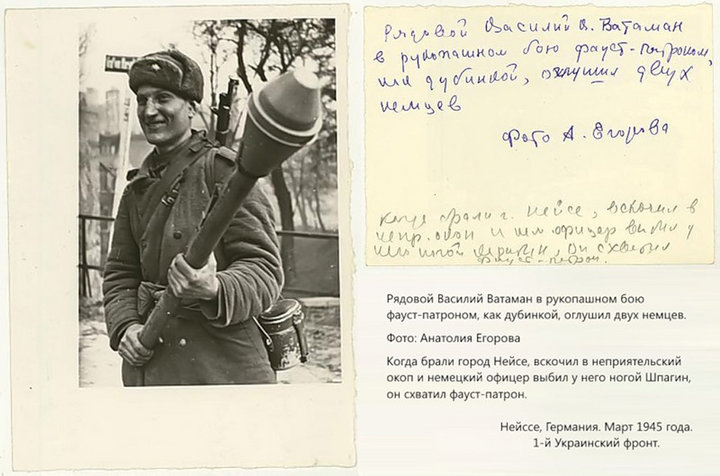 Рядовой Василий Ватаман
в рукопашном бою фауст-патроном,
как дубинкой, оглушил двух
немцев
Фото А. Егорова
Когда брали г. Нейсе, вскочил в
непр. окоп и нем офицер выбил у
него ногой Шпагин, он схватил
фауст-патрон.
Рядовой Василий Ватаман в рукопашном бою
фауст-патроном, как дубинкой, оглушил двух немцев.
Фото: Анатолия Егорова
Когда брали город Нейсе, вскочил в неприятельский
окоп и немецкий офицер выбил у него ногой Шпагин,
он схватил фауст-патрон.
Нейссе, Германия. Март 1945 года.
1-й Украинский фронт.